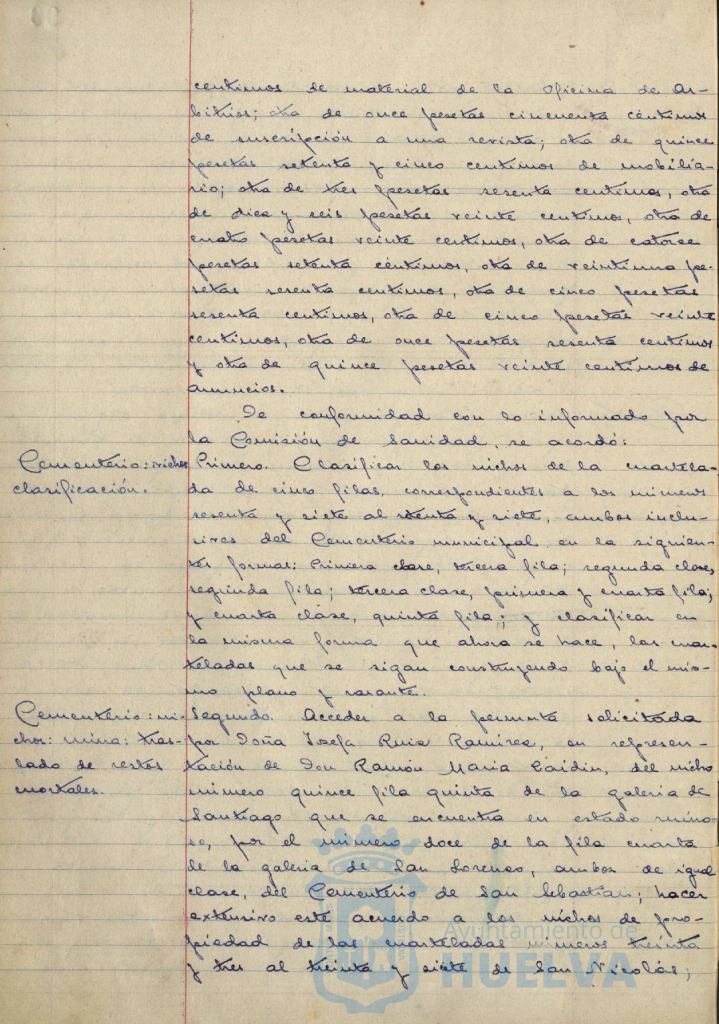 centimos de material de la Oficina de Ar-
bitrios; otra de once pesetas cincuenta centimos
de suscripción a una revista; otra de quince
pesetas setenta y cinco centimos de mobilia-
rio; otra de tres pesetas sesenta centimos, otra
de diez y seis pesetas veinte centimos, otra de
cuatro pesetas veinte centimos, otra de catorce
pesetas setenta centimos, otra de veintiuna pe-
setas sesenta centimos, otra de cinco pesetas
sesenta centimos, otra de cinco pesetas veinte
centimos, otra de once pesetas sesenta centimos
y otra de quince pesetas veinte centimos de
anuncios.
De conformidad con lo informado por
la Comisión de Sanidad, se acordó:
Cementerio: nichos
clasificación.
Primero. Clasificar los nichos de la cuartela-
da de cinco filas, correspondientes a los números
sesenta y siete al setenta y siete, ambos inclu-
sives del Cementerio municipal en la siguien-
tes formas: Primera clase, tercera fila; segunda clase,
segunda fila; tercera clase, primera y cuarta fila;
y cuarta clase, quinta fila; y clasificar en
la misma forma que ahora se hace, las cuar-
teladas que se sigan construyendo bajo el mis-
mo plano y rasante.
Cementerio: ni-
chos: ruina: tras-
lado de restos
mortales.
Segundo. Acceder a la permuta solicitada
por Doña Josefa Ruiz Ramírez, en represen-
tación de Don Ramón Maria, del nicho
número quince fila quinta de la galeria de
Santiago que se encuentra en estado ruino-
so, por el número doce de la fila cuarta
de la galeria de San Lorenzo, ambos de igual
clase, del Cementerio de San Sebastian; hacer
extensivo este acuerdo a los nichos de pro-
piedad de las cuarteladas números treinta
y tres al treinta y siete de San Nicolás;
Ayuntamiento de
HUELVA